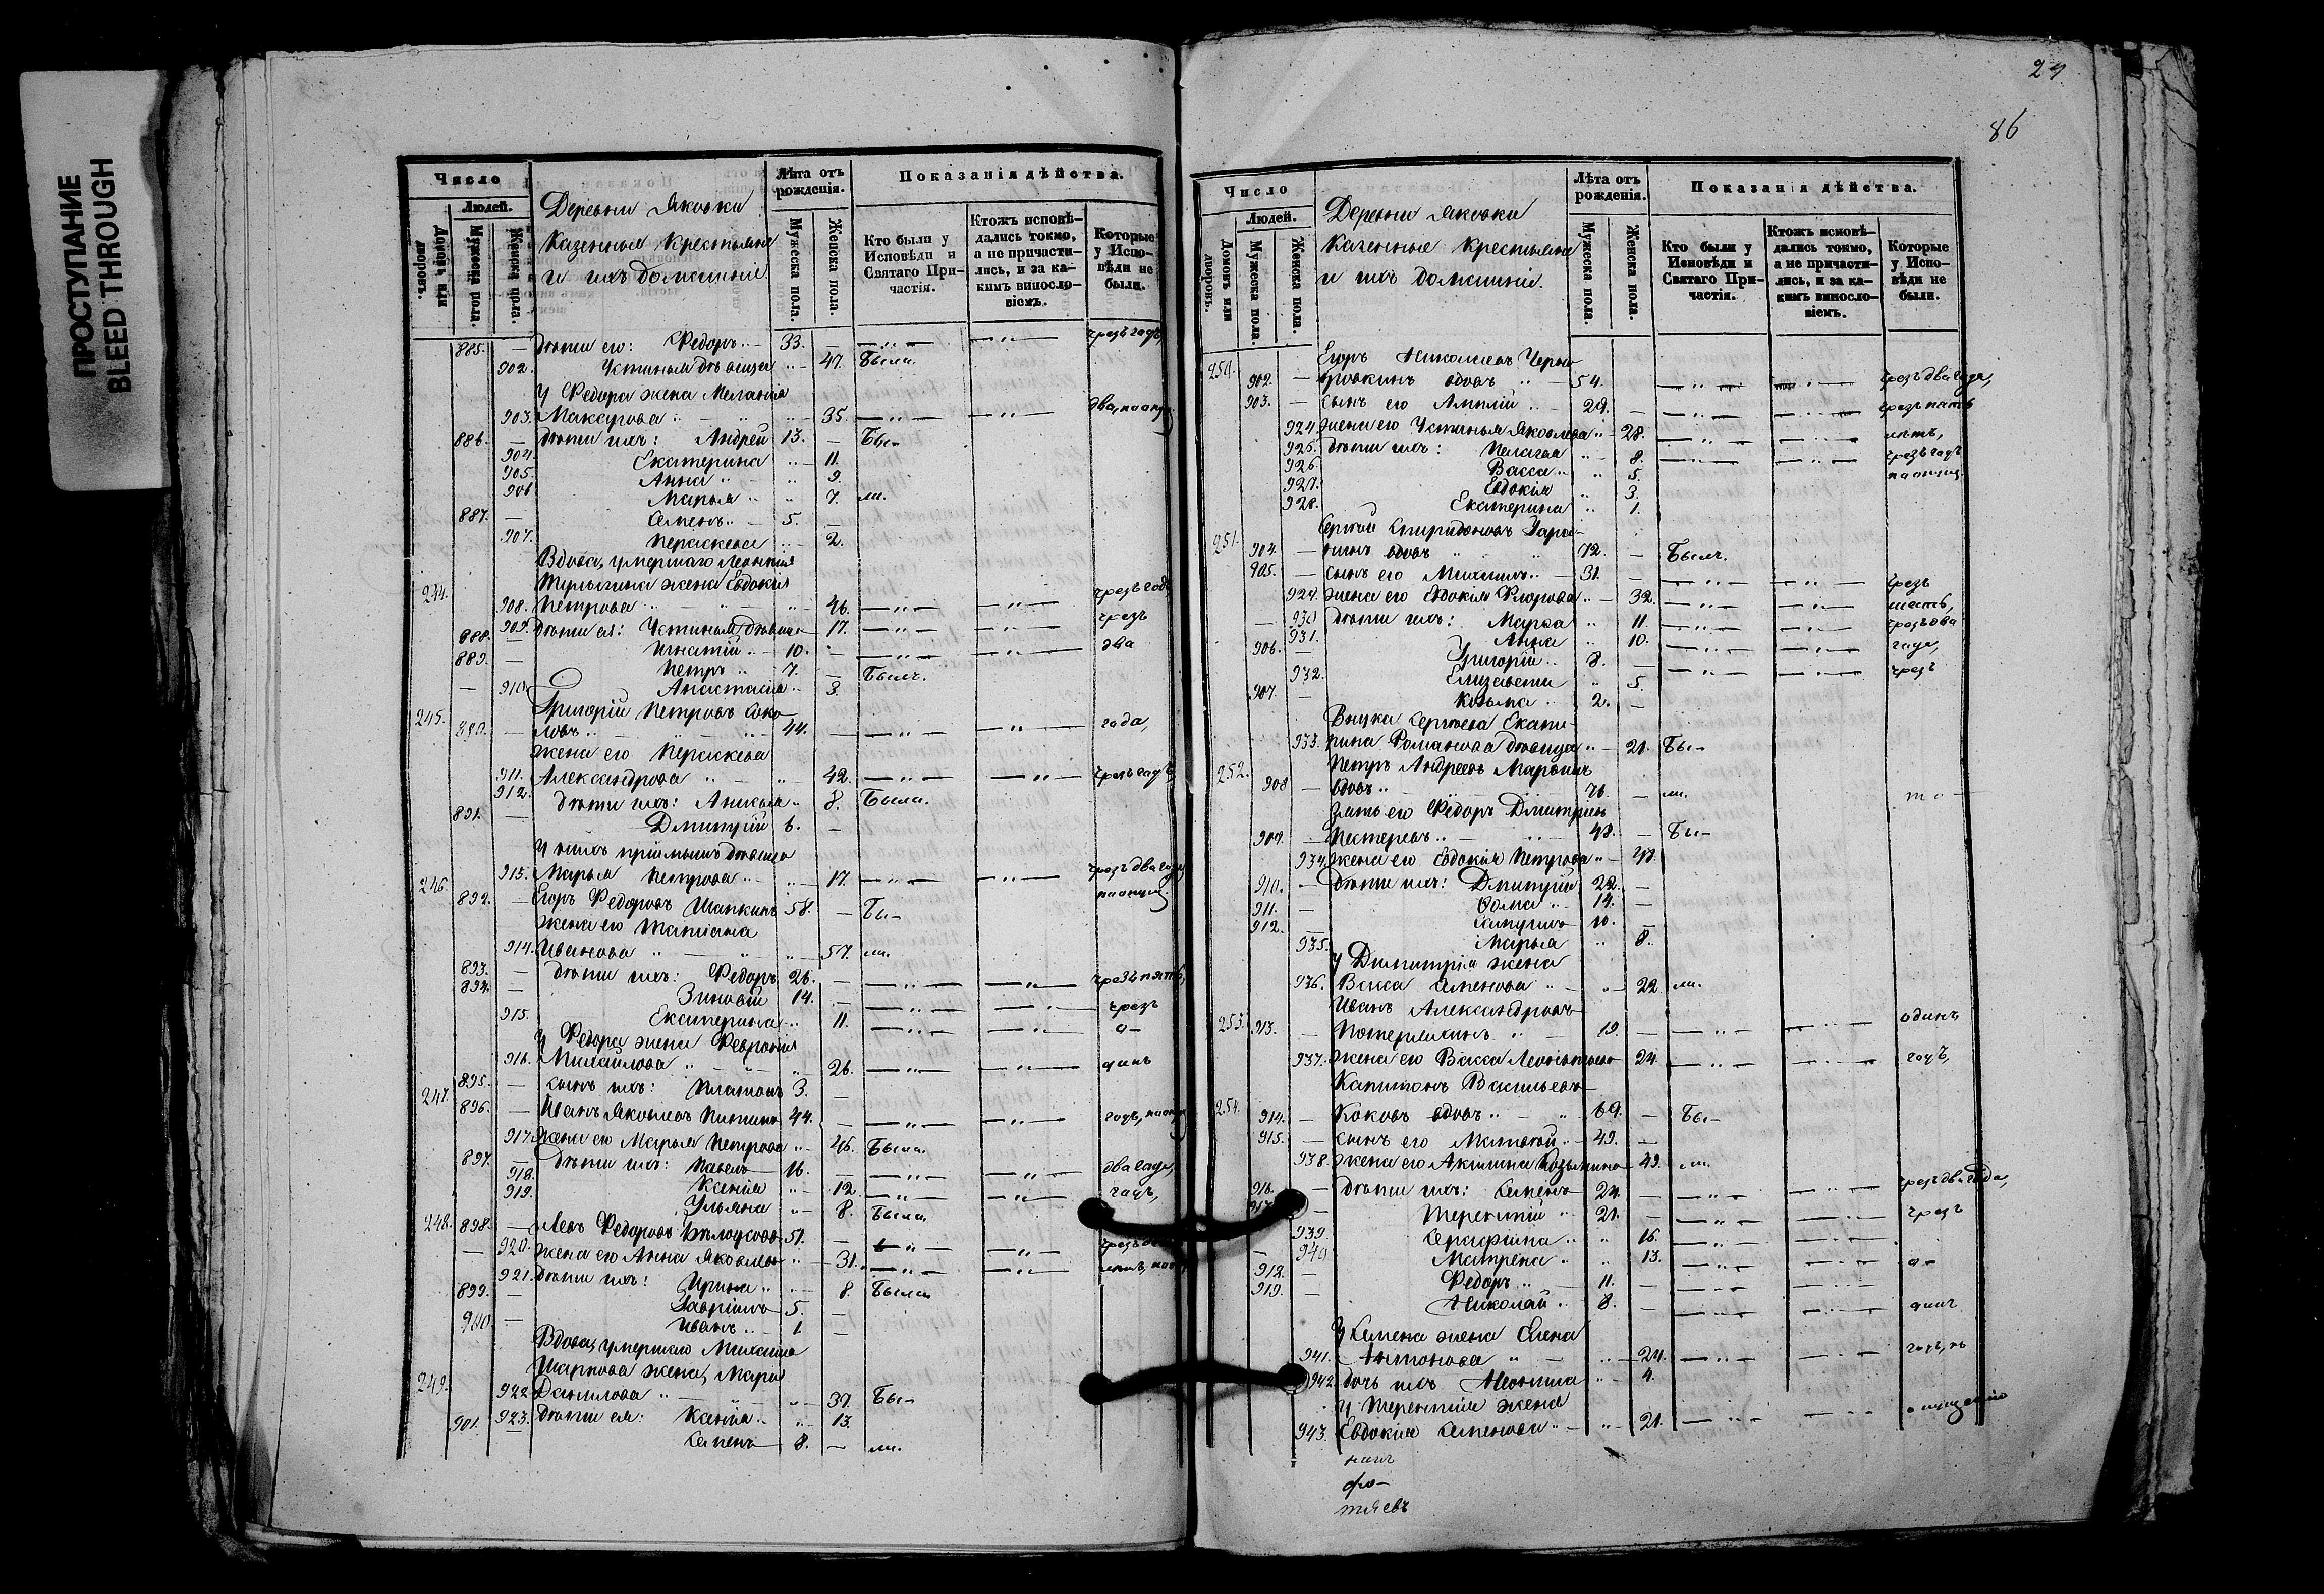 ПРОСТУПАНИЕ
BLEED THROUGH
Число
Людей.
Домовъ или дворовъ.
Мужеска пола.
Женска пола.
Деревни Яковки
Казенныя крестьяне
и ихъ домашнія
Лѣта отъ рожденія.
Мужеска пола.
Женска пола.
Показанія дѣйства.
Кто были у Исповѣди и Святаго Причастія.
Ктожъ исповѣдались токмо, а не причастились, и за какимъ винословіемъ.
Которые у Исповѣди не были.
885. — дѣти его: Федоръ 33. — чрезъ годъ,
902. Устинья дѣвица 47. Была.
У Федора жена Меланія
903. 35.
886. — дѣти ихъ: Андрей 13. — Бы-
904. Екатерина 11.
905. Анна 9.
906 Марья 7. ли.
887. — Семенъ 5. —
907. Параскева 2.
Вдова, умершаго Леонтія
жена Евдокія
244. 908. Петрова 46. чрезъ годъ
909. дѣти ея: Устинья дѣвица 17. чрезъ
888. — Игнатій 10. — два
889. — Петръ 7. — Былъ.
— 910. Анастасія 3.
Григорій Петровъ Соко-
245. 890. — ловъ 44. — года,
жена его Параскева
911. Александрова 42. чрезъ годъ,
912. дѣти ихъ: 8. Была.
891. — Димитрій 6. —
У нихъ пріемышъ дѣвица
913. Марья Петрова 17. чрезъ два года,
246. 892. — Егоръ Федоровъ Шапкинъ 58. — Бы-
жена его Татіана
914. Иванова 57. ли.
893. — дѣти ихъ: Федоръ 26. — чрезъ пять,
894. — Зиновій 14. — чрезъ
915. Екатерина 11. о-
У Федора жена Февронія
916. Михайлова 26. динъ
895. — сынъ ихъ: Платонъ 3. —
247. 896. — Иванъ Яковлевъ 44. —
917. жена его Марья Петрова 46. Была.
897. — дѣти ихъ: Павелъ 16. — два года,
918. Ксенія 12 годъ,
919. Ульяна 8. Была.
248. 898. — Левъ Федоровъ 51. —
— 920. жена его Анна Яковлева 31.
921. дѣти ихъ: Ирина 8. Была
899. — Гавріилъ 5. —
900 — Иванъ 1. —
Вдова, умершаго Михаила
жена, Марія
249. 922. Данилова 39. Бы-
923. дѣти ея: Ксенія 13.
901. — Семенъ 8. — ли.
29
86
Число
Людей.
Домовъ или дворовъ.
Мужеска пола.
Женска пола.
Деревни Яковки
Казенныя крестьяне
и ихъ домашнія.
Лѣта отъ рожденія.
Мужеска пола.
Женска пола.
Показанія дѣйства.
Кто были у Исповѣди и Святаго Причастія.
Ктожъ исповѣдались токмо, а не причастились, и за какимъ винословіемъ.
Которые у Исповѣди не были.
Егоръ Николаевъ
250. 902. — вдовъ 54. чрезъ два года,
903. — сынъ его 29. — чрезъ пять
924. жена его Устинья Яковлева 28. лѣтъ,
925. дѣти ихъ: Пелагея 8. чрезъ годъ
926. Васса 5.
927. Евдокія 3.
928. Екатерина 1.
Сергій Спиридоновъ
251. 904. — вдовъ 72. — Былъ.
905. — сынъ его Михаилъ 31. — чрезъ
929. жена его Евдокія Флорова 32. шесть,
— 930 дѣти ихъ: Марѳа 11. чрезъ два
931. Анна 10. года,
906. — Григорій 8. — чрезъ
932. Елизавета 5.
907. — Козьма 2. —
Внука Сергіева Екате-
933. рина Романова дѣвица 21. Бы-
Петръ Андреевъ
252. 908 — вдовъ 76. — ли.
Зять его Федоръ Димитріевъ
909. — Пестеревъ 48. — Бы-
934. жена его Евдокія Петрова 48.
910. — дѣти ихъ: Димитрій 22. —
911. — Ѳома 14. —
912. — 10. —
935. Марья 8.
У Димитрія жена
936. Васса Семенова 22. ли.
Иванъ Александровъ
253. 913. — 19. — одинъ
937. жена его Васса Леонтьева 24. годъ,
Капитонъ Васильевъ
254. 914. — Коковъ вдовъ 69. — Бы-
915. — сынъ его Матвѣй 49. —
938. жена его Акилина Козьмина 49. ли.
916. — дѣти ихъ: Семенъ 24. — чрезъ два года,
917. — Терентій 21. — чрезъ
939. Серафима 16.
— 940 Матрена 13. о-
918. — Федоръ 11. —
919. — Николай 8. — динъ
У Семена жена Елена
941. Антонова 24.
942 дочь ихъ 4.
У Терентія жена
943. Евдокія Семенова 21.